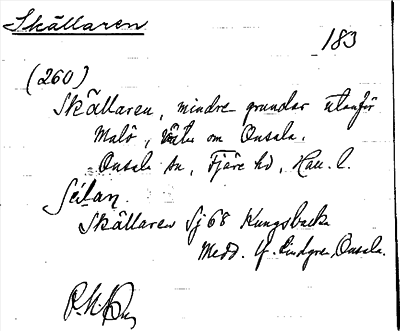 Skällaren
183
(260)
Skällaren, mindre grundar utanför
Malö, väster om Onsala.
Onsala sn, Fjäre hd, Hall. l.
Skällaren Sj 68 Kungsbacka
Medd. Lindgren, Onsala.